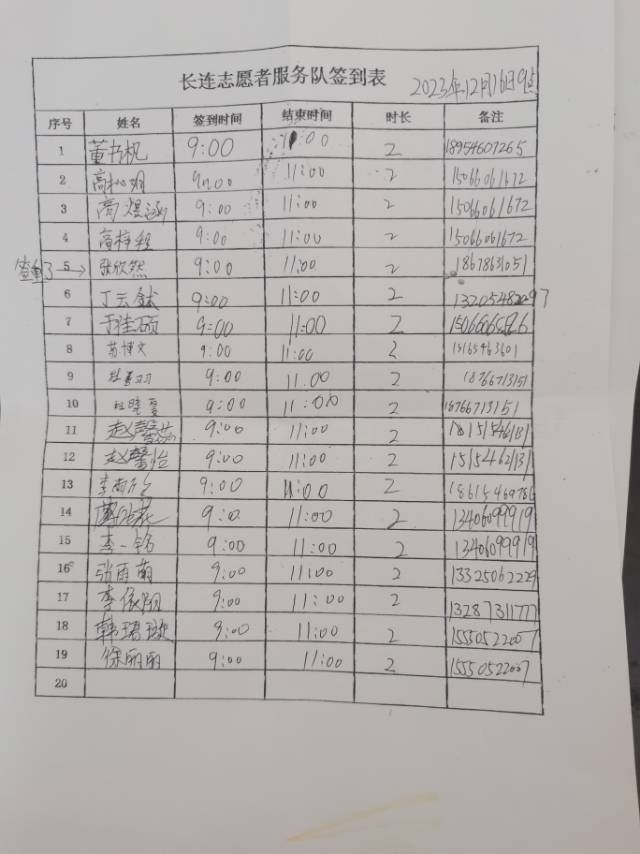 长连志愿者服务队签到表 2023年12月16日9点
序号 姓名 签到时间 结束时间 时长 备注
1 董书帆 9:00 11:00 2 18954607265
2 9:00 11:00 2 15066061672
3 高煜涵 9:00 11:00 2 15066061672
4 高梓程 9:00 11:00 2 15066061672
签重了→ 5 张欣然 9:00 11:00 2
6 丁云 9:00 11:00 2
7 于佳硕 9:00 11:00 2
8 苏博文 9:00 11:00 2
9 9:00 11.00 2 18766713151
10 9:00 11:00 2 18766713151
11 赵馨 9:00 11:00 2
12 赵馨怡 9:00 11:00 2
13 李 9:00 11:00 2
14 9:00 11:00 2 13406099919
15 李一铭 9:00 11:00 2 13406099919
16 张雨萌 9:00 11:00 2 13325062229
17 李依 9:00 11:00 2 13287311777
18 韩瑨璇 9:00 11:00 2 15550522007
19 徐丽丽 9:00 11:00 2 15550522007
20